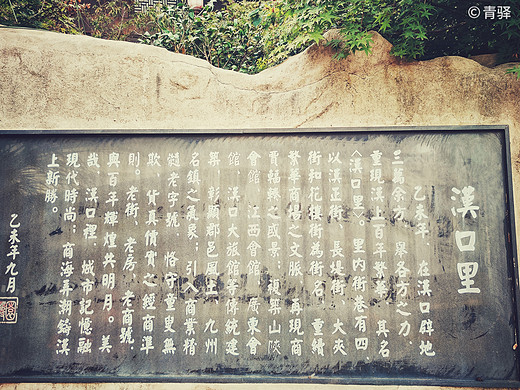 © 青驿
漢口里
乙未年，在漢口辟地
三萬余方，舉各方之力，
重現漢上百年繁華，其名
《漢口里》。里内街巷有四，
以漢正街、長堤街、大夾
街和花樓街為街名，重續
繁華商場之文脈，再現商
賈輻輳之盛景，復築山陝
會館、江西會館、廣東會
館、漢口大旅館等傳統建
築，彰顯郡邑風土，九州
名鎮之氣象；引入商業精
髓老字號，恪守童叟無
欺、貨真價實之經商準
則。老街、老房、老商號，
與百年輝煌共明月。美
哉，漢口裡，城市記憶融
現代時尚；商海弄潮鑄漢
上新勝。
乙未年九月